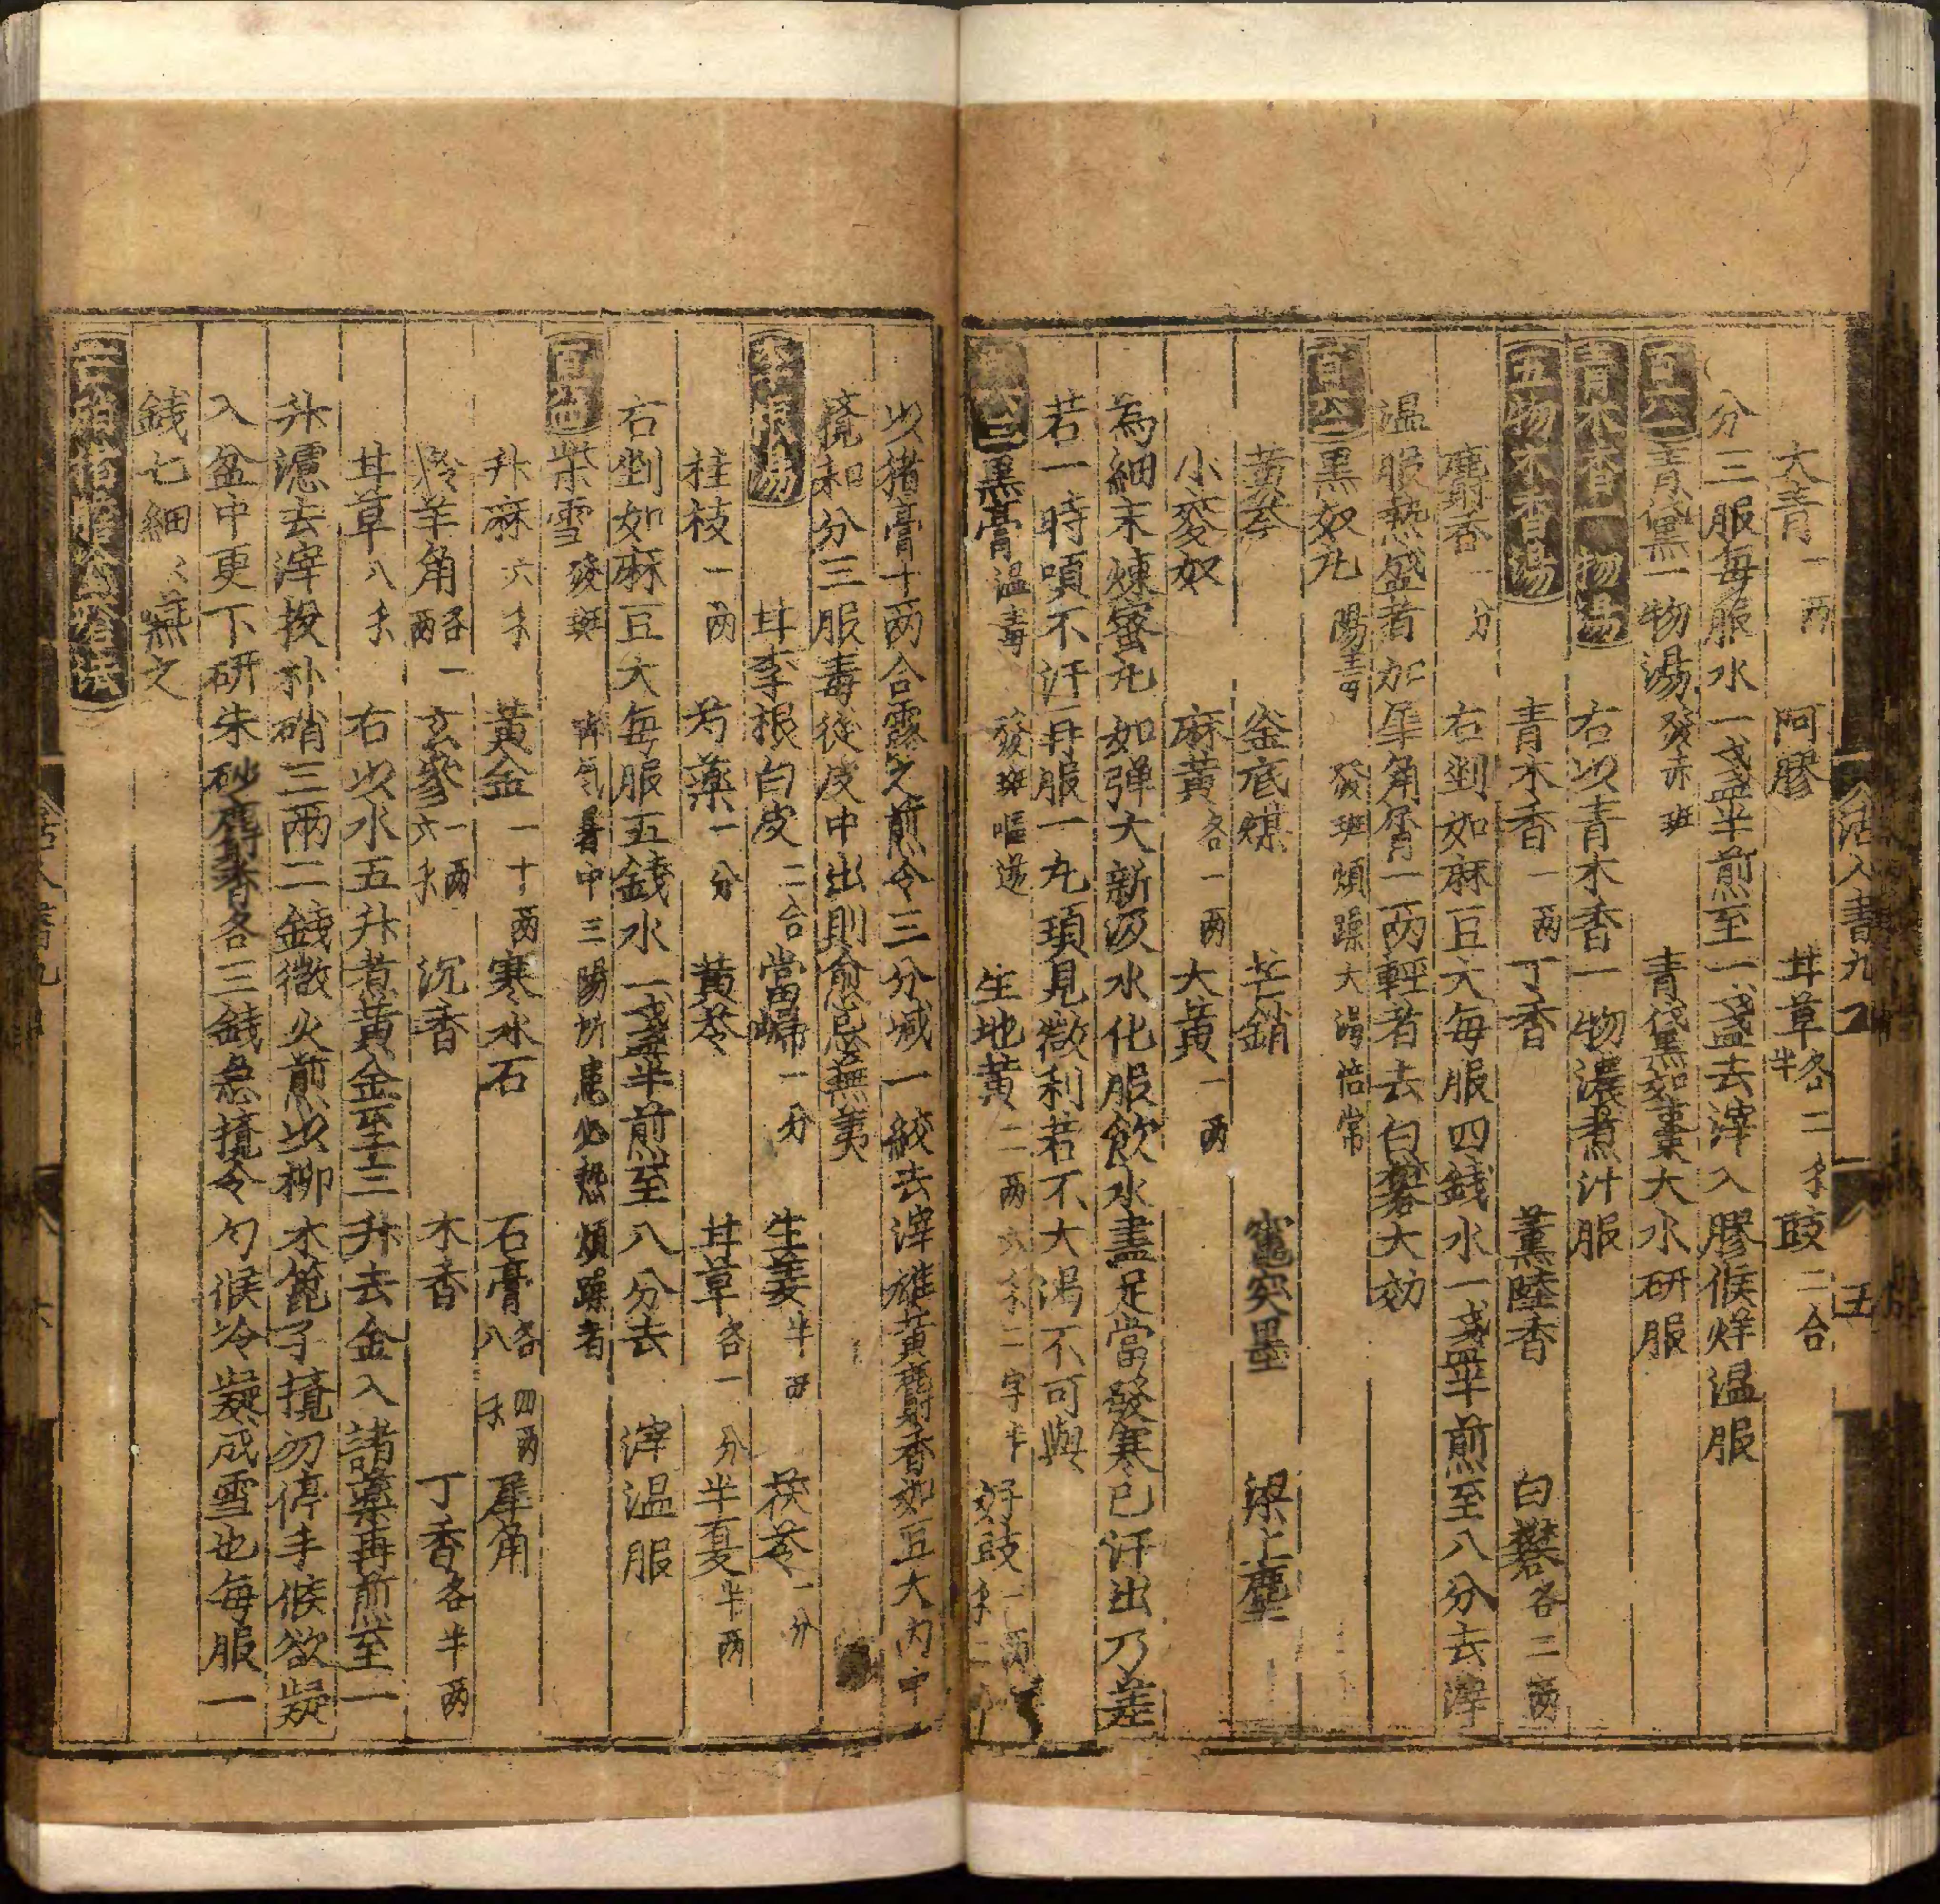 活人書九 五
大青一两 阿膠 甘草各二銖半 豉二合
分三服每服水一盞半煎至一盞去滓入膠候烊温服
青黛一物湯發赤斑 青黛如棗大水研服
青木香一物湯 右以青木香一物濃煮汁服
五物木香湯 青木香一两 丁香 薰陸香 白礬各二两
麝香一分 右剉如麻豆大每服四錢水一盞半煎至八分去滓
温服熱盛者加犀角屑一两輕者去白礬大効
黑奴丸陽毒 發斑煩躁大渴倍常
黄芩 釜底煤 芒硝 竈突墨 梁上塵
小麥奴 麻黄各一两 大黄一两
為細末煉蜜丸如弹大新汲水化服飲水盡足當發寒已汗出乃差
若一時頃不汗再服一丸須見微利若不大渴不可與
黑膏温毒 發斑嘔逆 生地黄二两六銖二字半 好豉
以猪膏十两合露之煎令三分减一絞去滓雄黄麝香如豆大内中
攪和分三服毒從皮中出則愈忌蕪荑
李根湯 甘李根白皮二合 當歸一分 生姜半两 茯苓一分
桂枝一两 芍藥一分 黄芩 甘草各一分 半夏半两
右剉如麻豆大每服五錢水一盞半煎至八分去滓温服
紫雪發斑 脚氣暑中三陽所患必熱煩躁者
升麻六銖 黄金一十两 寒水石 石膏各四两八銖 犀角
羚羊角各一两 玄參一两六銖 沉香 木香 丁香各半两
甘草八銖 右以水五升煮黄金至三升去金入諸藥再煎至一
升濾去滓投朴硝三两二錢微火煎以柳木篦子攪勿停手候欲凝
入盆中更下研朱砂麝香各三錢急攪令勻候冷凝成雪也每服一
錢匕細く嚥之